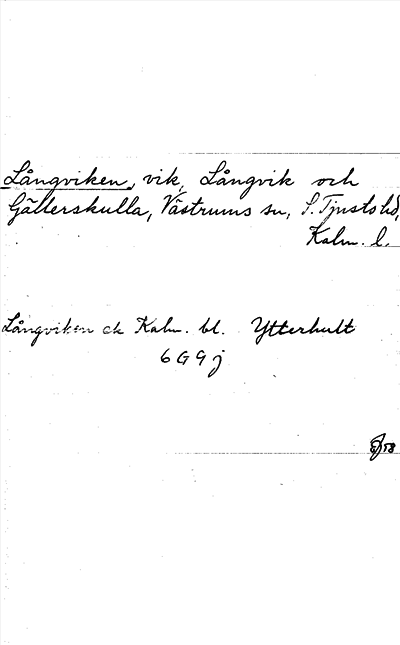 Långviken, vik, Långvik och
Gällerskulla, Västrums sn, S. Tjusts hd,
Kalm. l.
Långviken ek Kalm. bl. Ytterhult
6G9j
58